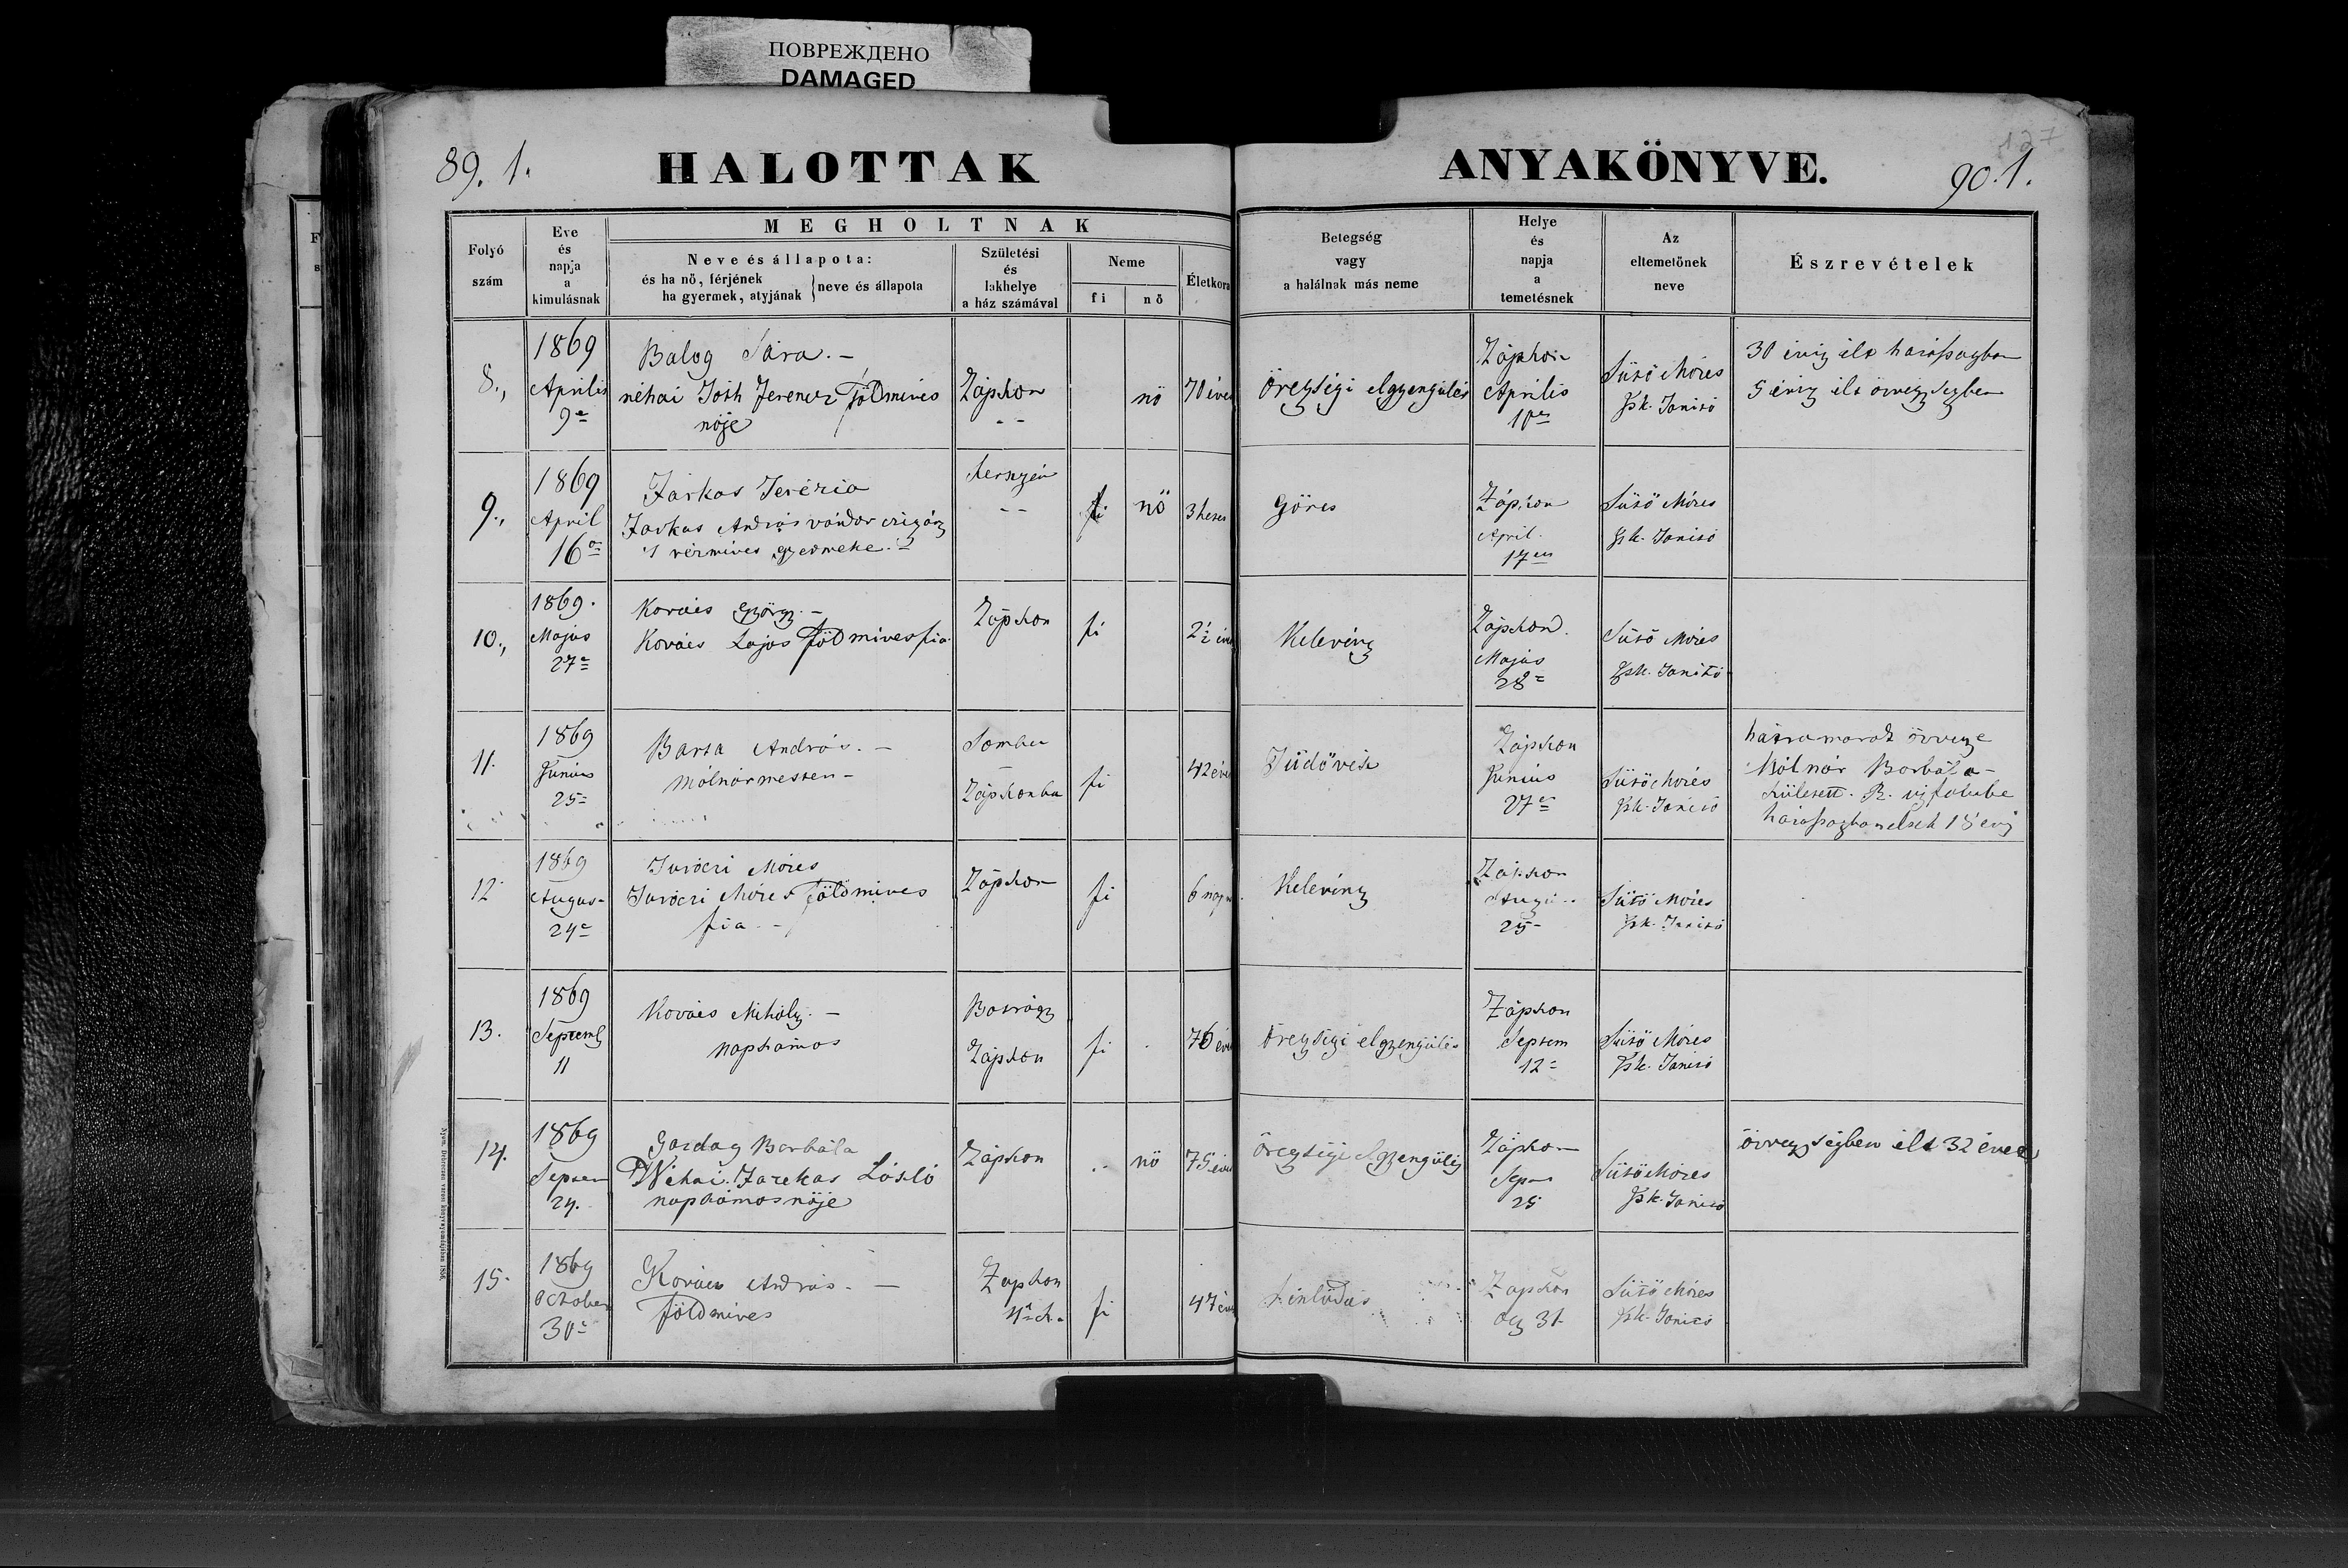 ПОВРЕЖДЕНО
DAMAGED
89. 1.
HALOTTAK
ANYAKÖNYVE.
127
90. 1.
Folyó
szám
Eve
és
napja
a
kimulásnak
MEGHOLTNAK
Neve és állapota:
és ha nő, férjének
ha gyermek, atyjának } neve és állapota
Születési
és
lakhelye
a ház számával
Neme
fi
nő
Életkora
Betegség
vagy
a halálnak más neme
Helye
és
napja
a
temetésnek
Az
eltemetőnek
neve
Észrevételek
8.,
1869
Aprilis
9
Balog Sára. –
néhai Tóth Ferencz földmives
nöje
Zápszon
nö
70 éves
öregségi elgyengülés
Zápszon
Aprilis
10
Sütö Móses
Isk. Tanitó
30 évig élt házasságban
5 évig élt özvegységben
9.,
1869
April
16
Farkas Terézia
Farkas András vándor czigány
's rézmives gyermeke. –
fi
nö
3 hetes
Göres
Zápszon
April.
17
Sütö Móses
Isk. Tanitó
10.,
1869.
Majus
27
Kovács György. –
Kovács Lajos földmives fia.
Zápszon
fi
Kelevény
Zápszon.
Majus
28
Sütö Móses
Isk. Tanitó
11.
1869
Junius
25
Barta András. –
Molnármester –
Zápszonba
fi
42 éves
Tüdővész
Zápszon
Junius
27
Sütö Móses
Isk. Tanitó
hátramaradt özvegye
Molnár Borbála –
született. R. ujfaluba
házasságban éltek 18 évig
12
1869
Augus-
24
Turóczi Móses
Turóczi Móses földmives
fia. –
Zápszon
fi
6 napos
Kelevény
Zápszon
25
Sütö Móses
Isk. Tanitó
13.
1869
Septemb
11
Kovács Mihály. –
napszámos
Bátrágy
Zápszon
fi
76 éves
öregségi elgyengülés
Zápszon
Septem
12
Sütö Móses
Isk. Tanitó
14.
1869
Septem
24.
Gazdag Borbála
Néhai Farkas László
napszámos nöje
Zápszon
nö
75 éves
öregségi elgyengülés
Zápszon
Sep
25
Sütö Móses
Isk. Tanitó
özvegységben élt 32 évet
15.
1869
October
30
Kovács András. –
földmives
Zapszon
fi
47 éves
Zapszon
31
Sütö Móses
Isk. Tanitó